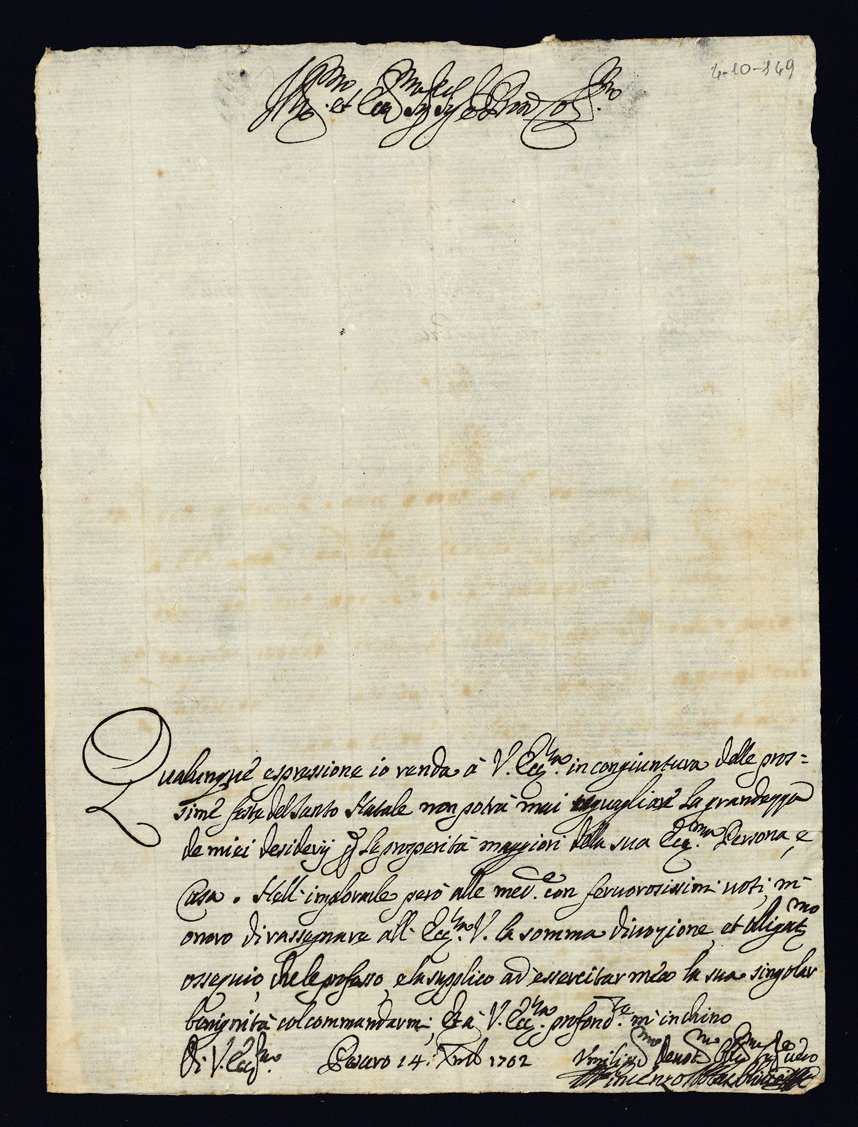 4-10-169
Ill.mo et Ecc.mo Sig.r Sig.r e Pad.ne Col.mo
Qualunque espressione io renda à V. Ecc.za in congiuntura delle pros=
sime feste del Santo Natale non potrà mai eguagliare la grandezza
de miei desiderij p le prosperità maggiori della sua Ecc.ma Persona, e
Casa. Nell'implorarle però alle med.e con feruorosissimi uoti, m'
onoro di rassegnare all'Ecc.za V. la somma diuozione, et obligat.mo
ossequio, che le professo, e la supplico ad essercitar meco la sua singolar
benignità col commandarmi; Et à V. Ecc.za profond.te m'inchino
Di V. Ecc.za Pesaro 14. Xmb 1702 Vmiliss.mo Deuot.mo Obl.mo
Vincenzo